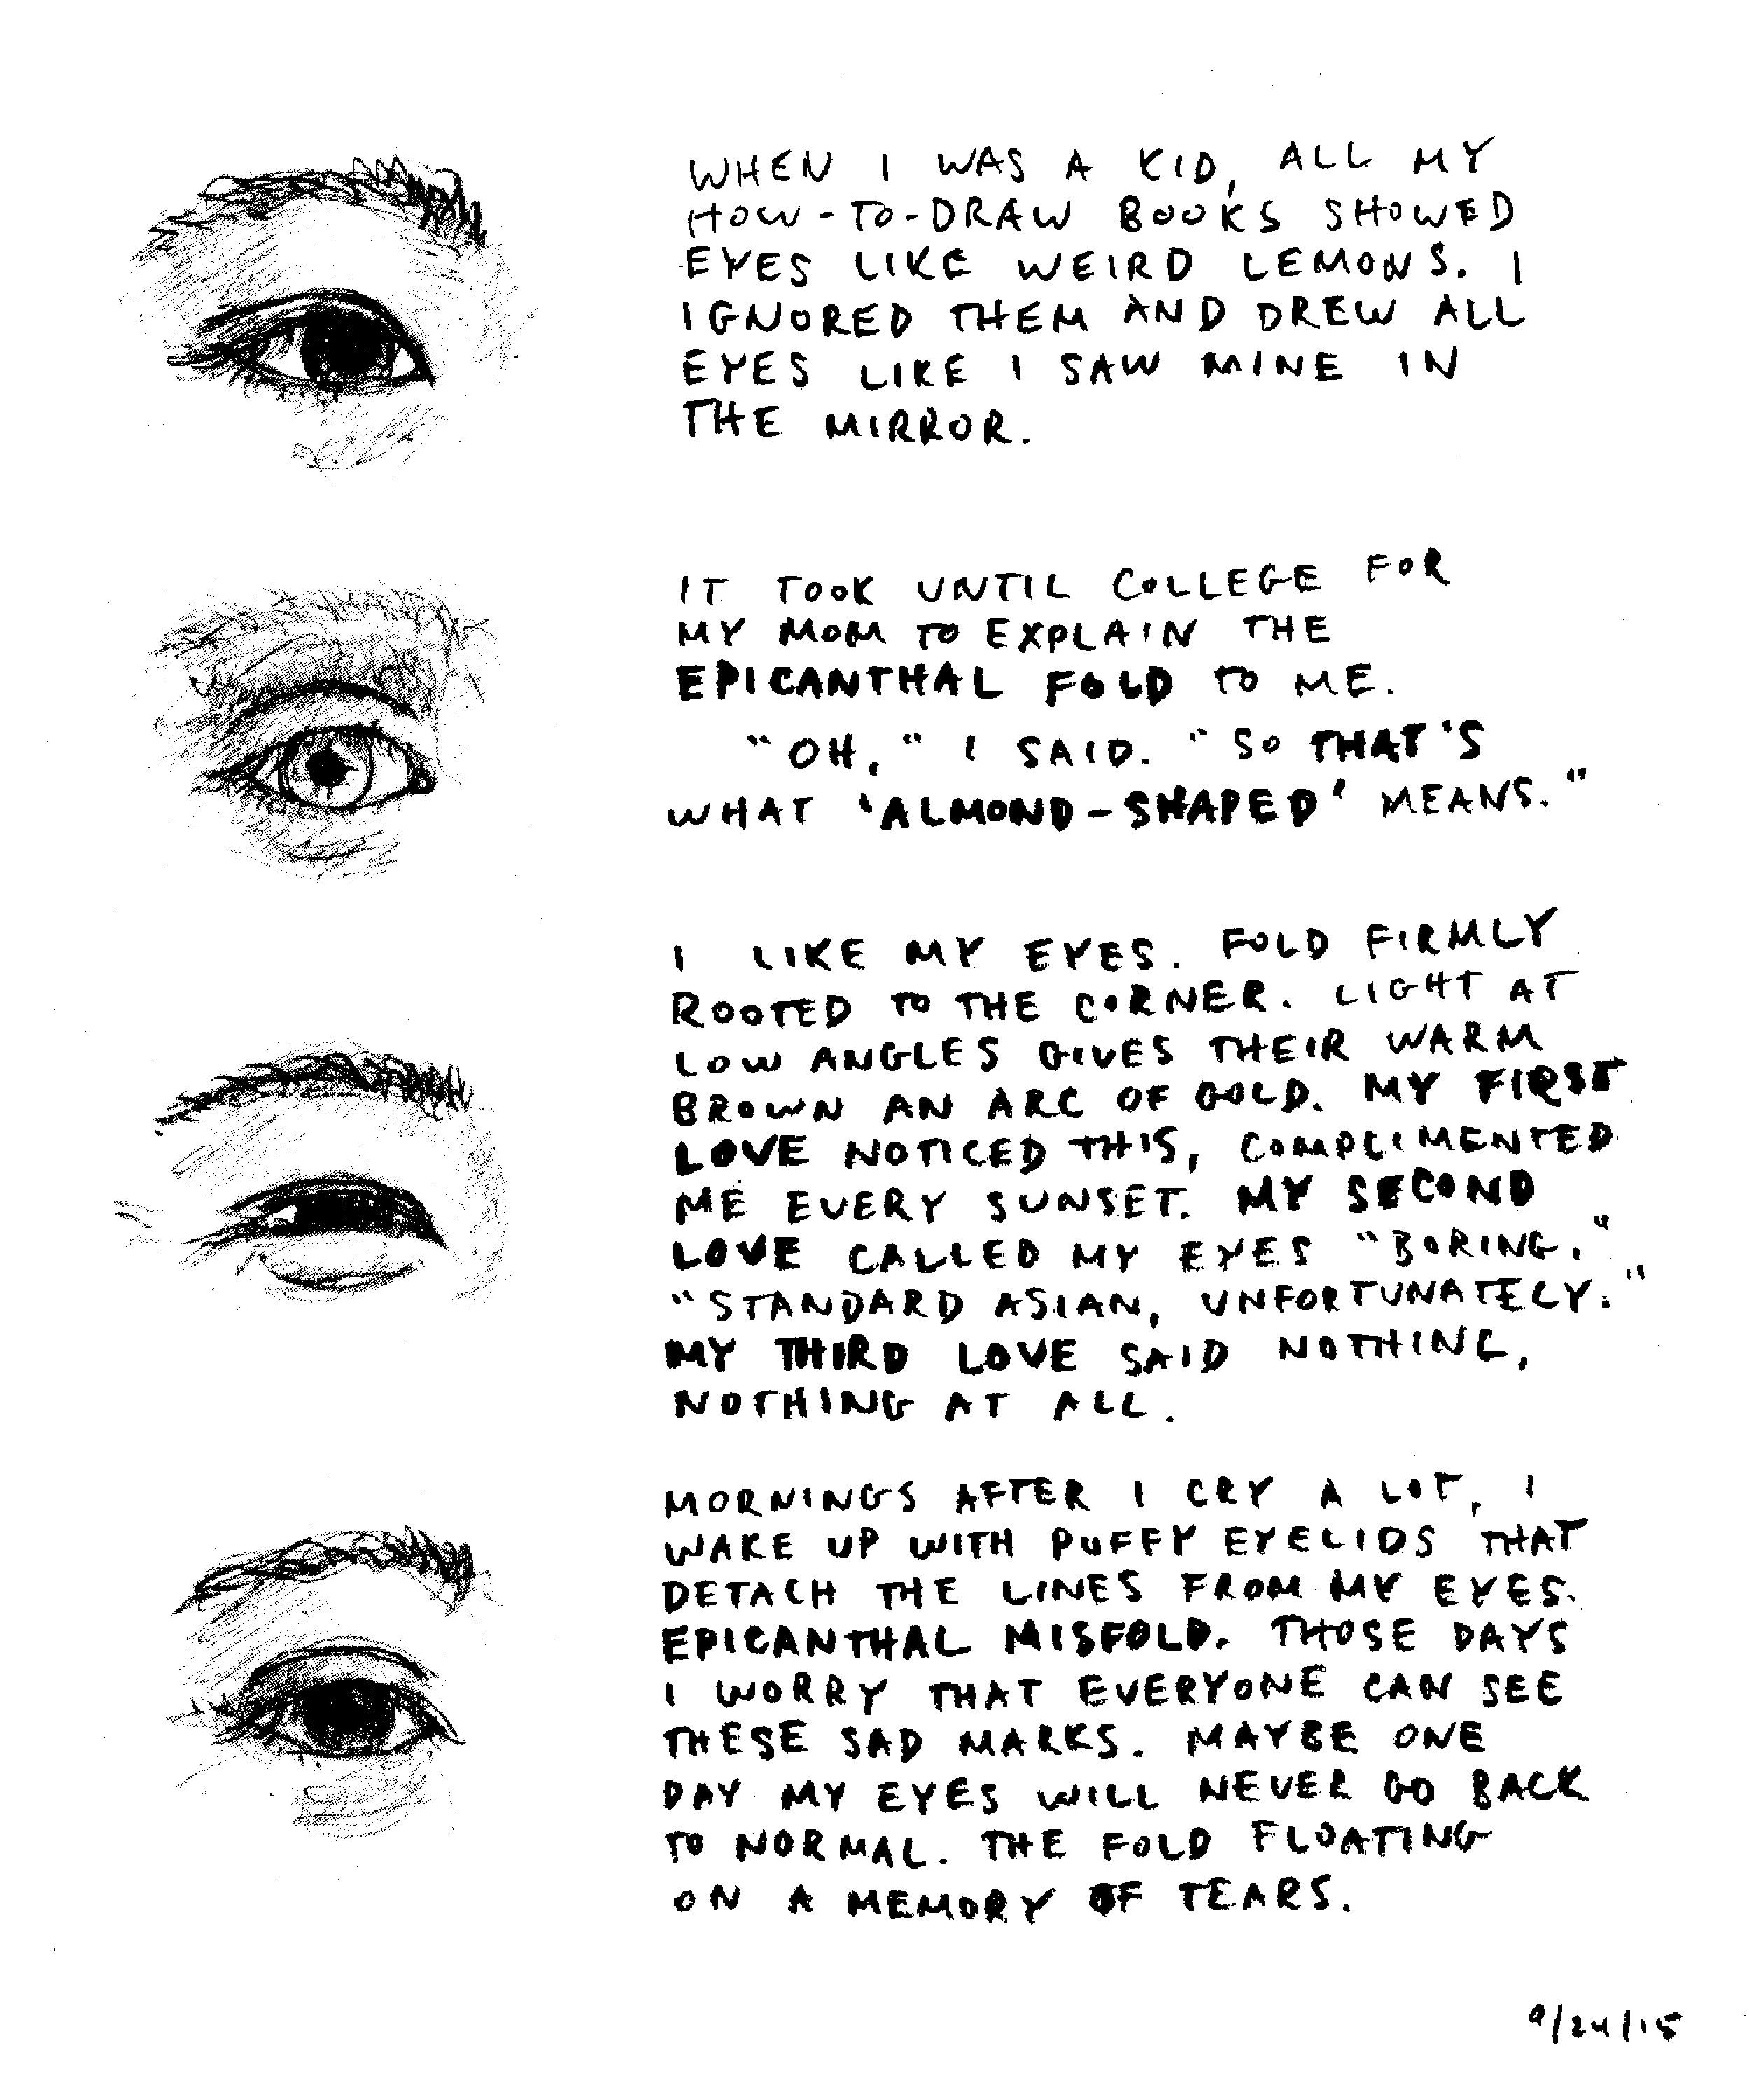 WHEN I WAS A KID, ALL MY
HOW-TO-DRAW BOOKS SHOWED
EYES LIKE WEIRD LEMONS. I
IGNORED THEM AND DREW ALL
EYES LIKE I SAW MINE IN
THE MIRROR.
IT TOOK UNTIL COLLEGE FOR
MY MOM TO EXPLAIN THE
EPICANTHAL FOLD TO ME.
"OH," I SAID. "SO THAT'S
WHAT 'ALMOND-SHAPED' MEANS."
I LIKE MY EYES. FOLD FIRMLY
ROOTED TO THE CORNER. LIGHT AT
LOW ANGLES GIVES THEIR WARM
BROWN AN ARC OF GOLD. MY FIRST
LOVE NOTICED THIS, COMPLIMENTED
ME EVERY SUNSET. MY SECOND
LOVE CALLED MY EYES "BORING."
"STANDARD ASIAN, UNFORTUNATELY."
MY THIRD LOVE SAID NOTHING,
NOTHING AT ALL.
MORNINGS AFTER I CRY A LOT, I
WAKE UP WITH PUFFY EYELIDS THAT
DETACH THE LINES FROM MY EYES.
EPICANTHAL MISFOLD. THOSE DAYS
I WORRY THAT EVERYONE CAN SEE
THESE SAD MARKS. MAYBE ONE
DAY MY EYES WILL NEVER GO BACK
TO NORMAL. THE FOLD FLOATING
ON A MEMORY OF TEARS.
9/24/15